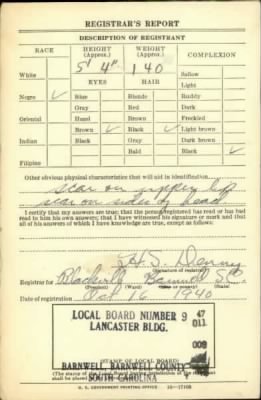 REGISTRAR'S REPORT
DESCRIPTION OF REGISTRANT
RACE HEIGHT (Approx.) WEIGHT (Approx.) COMPLEXION
5' 4" 140
White EYES HAIR Sallow
Light
Negro ✓ Blue Blonde Ruddy
Gray Red Dark
Oriental Hazel Brown Freckled
Brown ✓ Black ✓ Light brown
Indian Black Gray Dark brown
Bald Black ✓
Filipino
Other obvious physical characteristics that will aid in identification
scar on upper lip
scar on side of head.
I certify that my answers are true; that the person registered has read or has had
read to him his own answers; that I have witnessed his signature or mark and that
all of his answers of which I have knowledge are true, except as follows:
H.S. Denny
(Signature of registrar)
Registrar for Blackville Barnwell S.C.
(Precinct) (Ward) (City or county) (State)
Date of registration Oct 16 1940
LOCAL BOARD NUMBER 9 47
LANCASTER BLDG. 011
009
(STAMP OF LOCAL BOARD)
BARNWELL, BARNWELL COUNTY
SOUTH CAROLINA
(The stamp of the Local Board
shall be placed
U. S. GOVERNMENT PRINTING OFFICE 16—17105